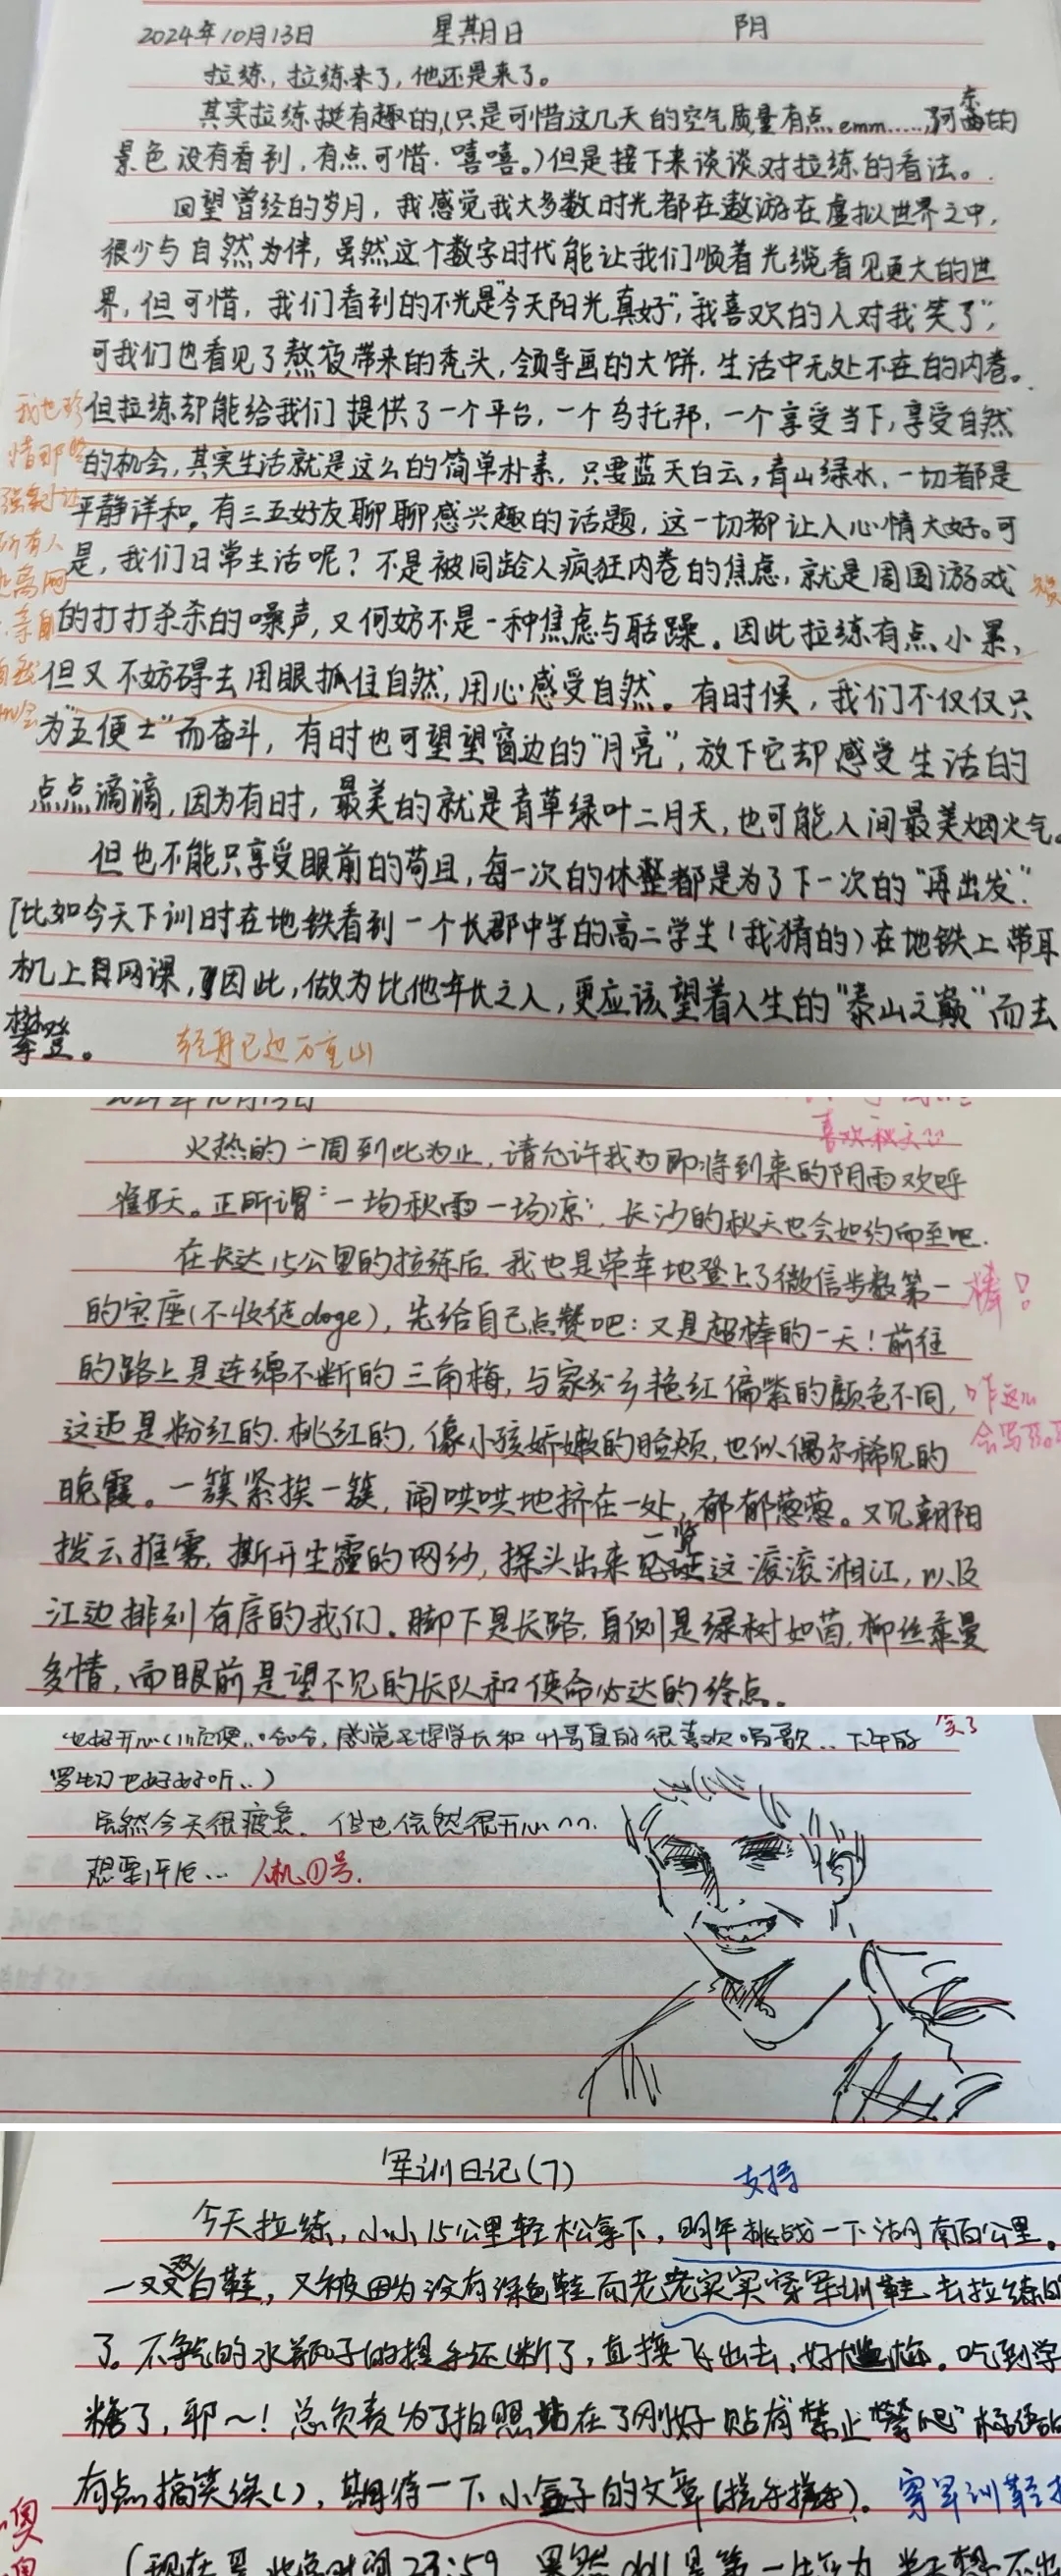 2024年10月13日 星期日 阴
拉练，拉练来了，他还是来了。
其实拉练挺有趣的，（只是可惜这几天的空气质量有点emm……，阿东西的
景色没有看到，有点可惜．嘻嘻。）但是接下来谈谈对拉练的看法。
回望曾经的岁月，我感觉我大多数时光都在遨游在虚拟世界之中，
很少与自然为伴，虽然这个数字时代能让我们顺着光缆看见更大的世
界，但可惜，我们看到的不光是“今天阳光真好”，“我喜欢的人对我笑了”，
可我们也看见了熬夜带来的秃头，领导画的大饼，生活中无处不在的内卷。
但拉练却能给我们提供了一个平台，一个乌托邦，一个享受当下，享受自然
的机会，其实生活就是这么的简单朴素，只要蓝天白云，青山绿水，一切都是
平静详和。有三五好友聊聊感兴趣的话题，这一切都让人心情大好。可
是，我们日常生活呢？不是被同龄人疯狂内卷的焦虑，就是周围游戏
的打打杀杀的噪声，又何妨不是一种焦虑与聒躁。因此拉练有点小累，
但又不妨碍去用眼抓住自然，用心感受自然。有时候，我们不仅仅只
为“五便士”而奋斗，有时也可望望窗边的“月亮”，放下它却感受生活的
点点滴滴，因为有时，最美的就是青草绿叶二月天，也可能人间最美烟火气。
但也不能只享受眼前的苟且，每一次的休整都是为了下一次的“再出发”
[比如今天下训时在地铁看到一个长郡中学的高二学生（我猜的）在地铁上带耳
机上网课，因此，做为比他年长之人，更应该望着人生的“泰山之巅”而去
攀登。
我也珍
惜那些
所有人
离网
亲自
轻舟已过万重山
2024年10月13日
喜欢秋天
火热的一周到此为止，请允许我为即将到来的阴雨欢呼
雀跃。正所谓“一场秋雨一场凉”，长沙的秋天也会如约而至吧．
在长达15公里的拉练后，我也是荣幸地登上了微信步数第一
的宝座（不收徒doge），先给自己点赞吧：又是超棒的一天！前往
棒！
的路上是连绵不断的三角梅，与家乡艳红偏紫的颜色不同，
咋这么
会写
这边是粉红的．桃红的，像小孩娇嫩的脸颊，也似偶尔稀见的
晚霞。一簇紧挨一簇，闹哄哄地挤在一处，郁郁葱葱。又见朝阳
拨云推雾，撕开尘霾的网纱，探头出来一览这滚滚湘江，以及
江边排列有序的我们。脚下是长路，身侧是绿树如茵，柳丝柔曼
多情，而眼前是望不见的长队和使命必达的终点。
哈哈，感觉学长和哥真的很喜欢唱歌..下午的
笑了
也好好听..）
虽然今天很疲惫．但也依然很开心^^．
想要评后… 人机①号．
军训日记（7）
支持
今天拉练，小小15公里轻松拿下，明年挑战一下湖南百公里。
一双白鞋，又被因为没有深色鞋而老老实实穿军训鞋去拉练的
了。不争气的水瓶子的提手还断了，直接飞出去，好尴尬。吃到学
糖了，耶～！总负责为了拍照站在了刚好贴有“禁止攀爬”标语的
有点搞笑，期待一下小盒子的文章（搓手搓手）。
穿军训鞋
噢
（现在是北京时间23:59，果然ddl是第一生产力